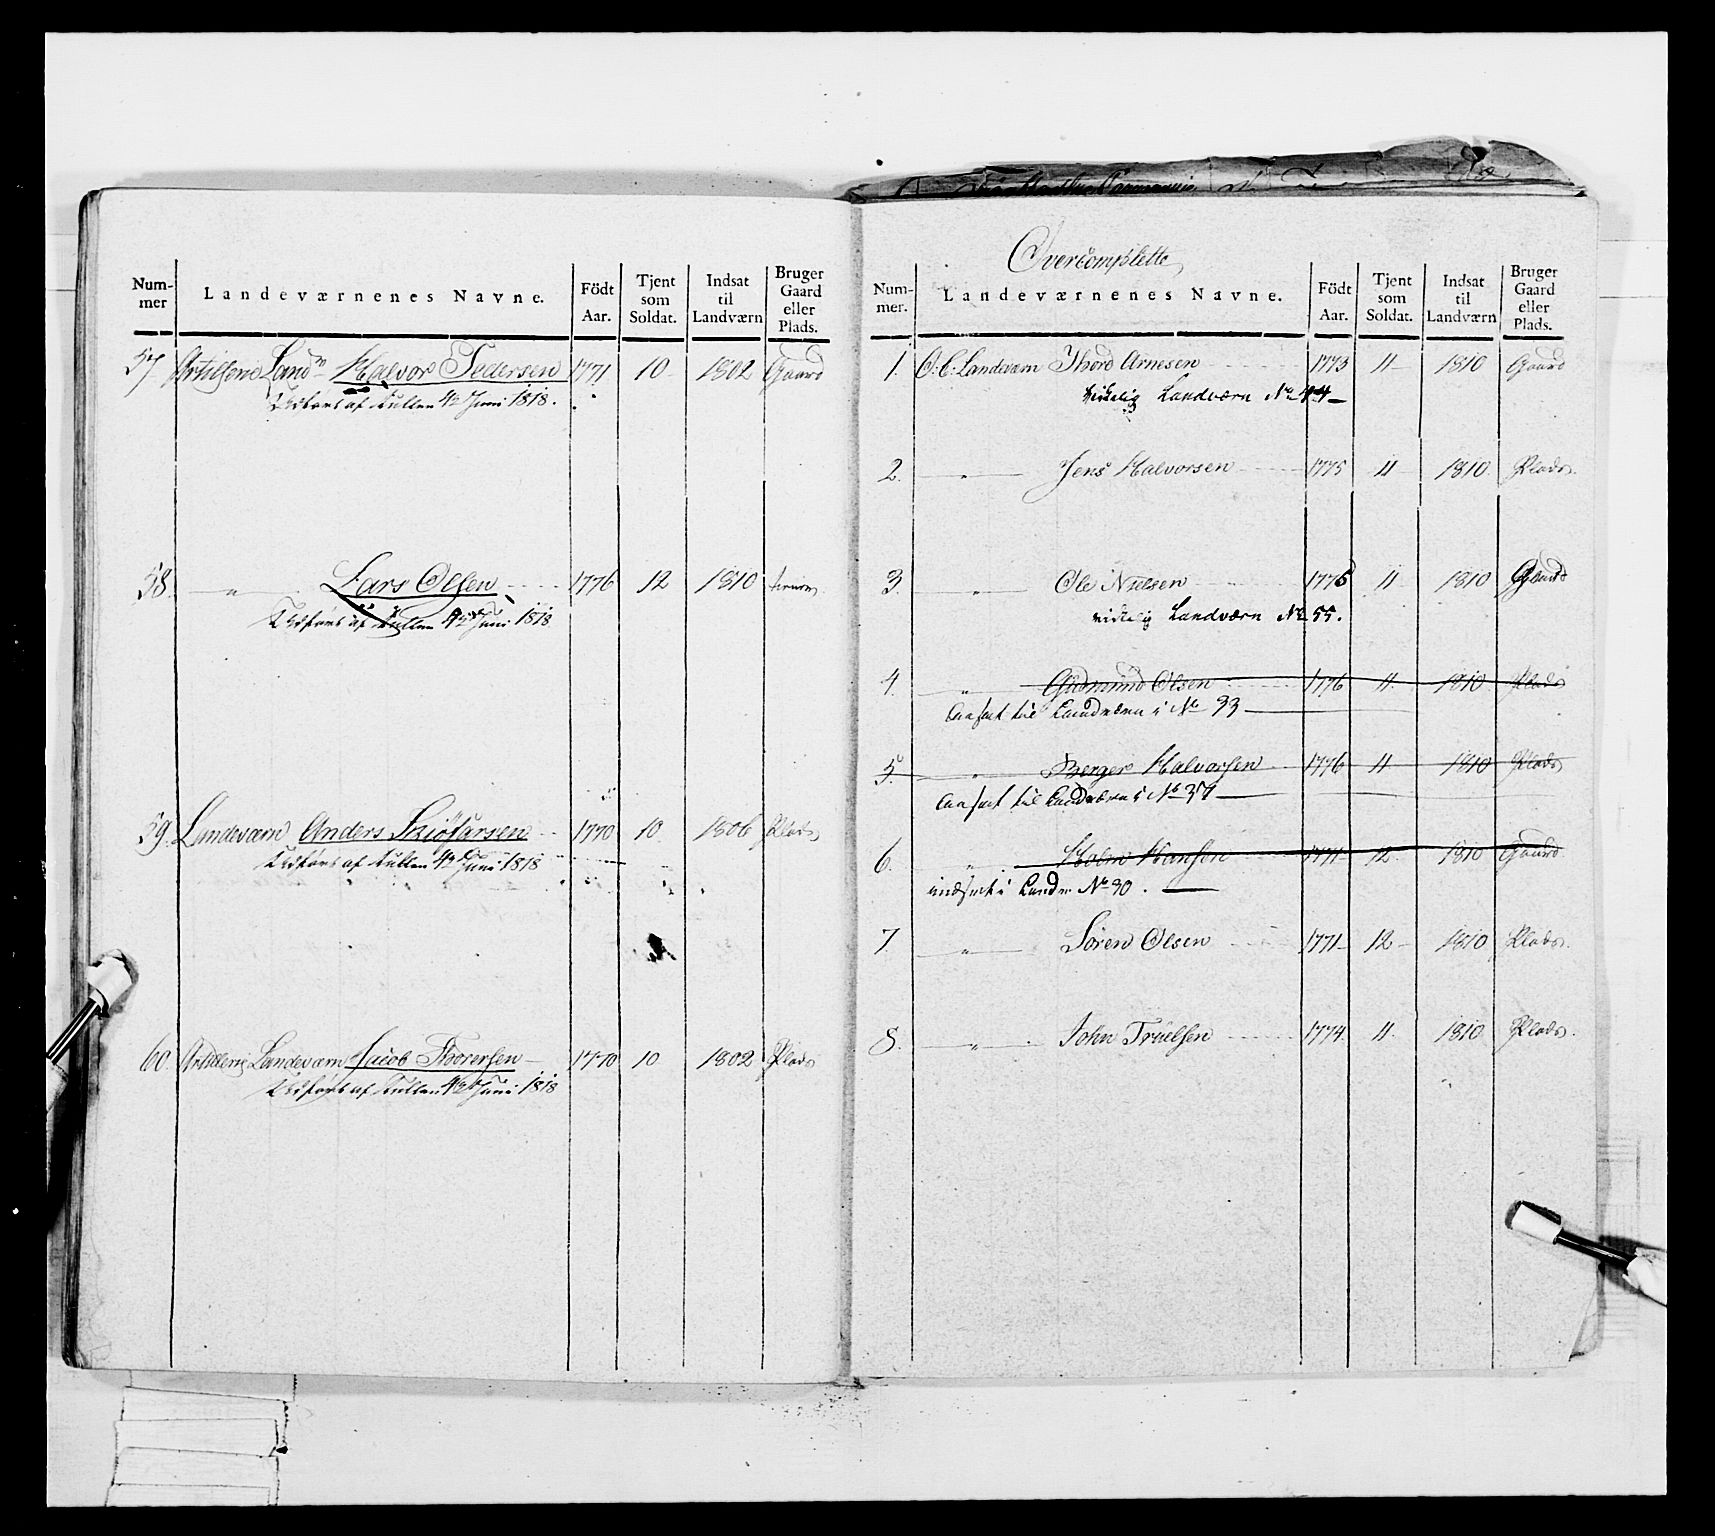 Num-
mer
Landeværnenes Navne.
Födt
Aar.
Tjent
som
Soldat.
Indsat
til
Landværn
Bruger
Gaard
eller
Plads.
57 Landv Halvor Pedersen 1771 10 1802 Gaard
af Rullen 4de Juni 1818.
58. " Lars Olsen 1776 12 1810
af Rullen 4de Juni 1818
59. Landeværn Anders 1770 10 1806 Plads
af Rullen 4de Juni 1818
60. Artillerie Landeværn Jacob Thorersen 1770 10 1802 Plads
af Rullen 4de Juni 1818
Overcomplette
Num-
mer.
Landeværnenes Navne.
Födt
Aar.
Tjent
som
Soldat.
Indsat
til
Landværn
Bruger
Gaard
eller
Plads.
1. O: C: Landeværn Thord Arnesen 1773 11 1810 Gaard
virkelig Landværn No 44
2. " Jens Halvorsen 1775 11 1810. Plads.
3. " Ole Nielsen 1775 11 1810
virkelig Landværn No 55.
4. " Gudmund Olsen 1776 11. 1810 Plads
til Landværn i No 33
5. " Berger Halvorsen 1776 11. 1810 Plads
til Landværn i No 37
6. " Holm Hansen 1771 12. 1810 Gaard
indsat i Landv No 30.
7. " Sören Olsen 1771 12 1810 Plads.
8. " John Truelsen 1774. 11. 1810 Plads.